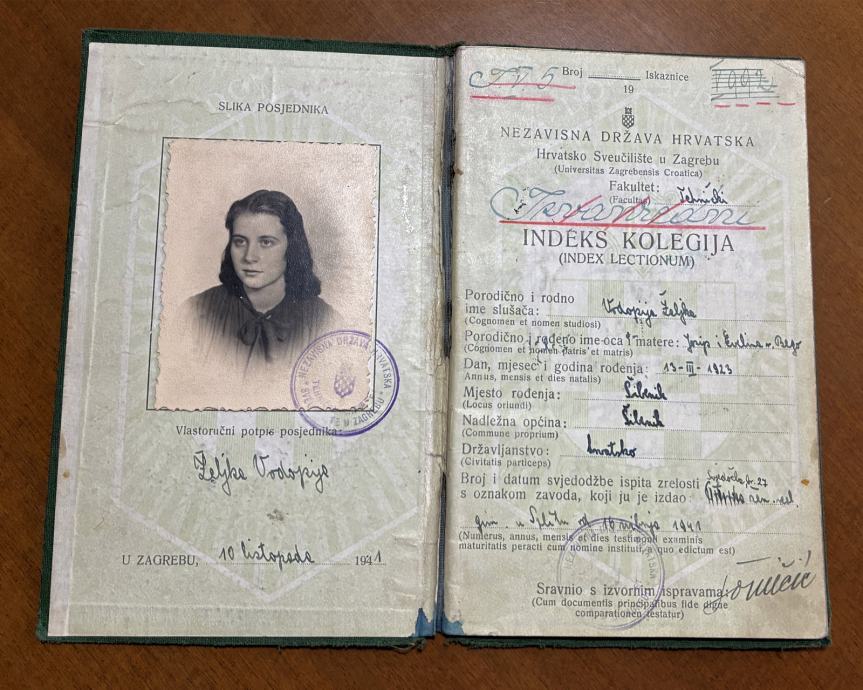 SLIKA POSJEDNIKA
NEZAVISNA DRŽAVA HRVATSKA
U ZAGREBU
Vlastoručni potpis posjednika:
Željka Vodopija
U ZAGREBU, 10 listopada 1941
IV. 5 Broj Iskaznice
19
NEZAVISNA DRŽAVA HRVATSKA
Hrvatsko Sveučilište u Zagrebu
(Universitas Zagrebensis Croatica)
Fakultet:
(Facultas) tehnički
INDEKS KOLEGIJA
(INDEX LECTIONUM)
Porodično i rodno
ime slušača: Vodopija Željka
(Cognomen et nomen studiosi)
Porodično i rođeno ime oca i matere: Josip i Evelina r.
(Cognomen et nomen patris et matris)
Dan, mjesec i godina rođenja: 13-III-1923
Annus, mensis et dies natalis)
Mjesto rođenja: Šibenik
(Locus oriundi)
Nadležna općina: Šibenik
(Commune proprium)
Državljanstvo: hrvatsko
(Civitatis particeps)
Broj i datum svjedodžbe ispita zrelosti br. 27
s oznakom zavoda, koji ju je izdao: žen. real.
gim. u Splitu od 16 1941
(Numerus, annus, mensis et dies testimonii examinis
maturitatis peracti cum nomine instituti, a quo edictum est)
Sravnio s izvornim ispravama:
(Cum documentis principalibus fide digne
comparationem testatur)